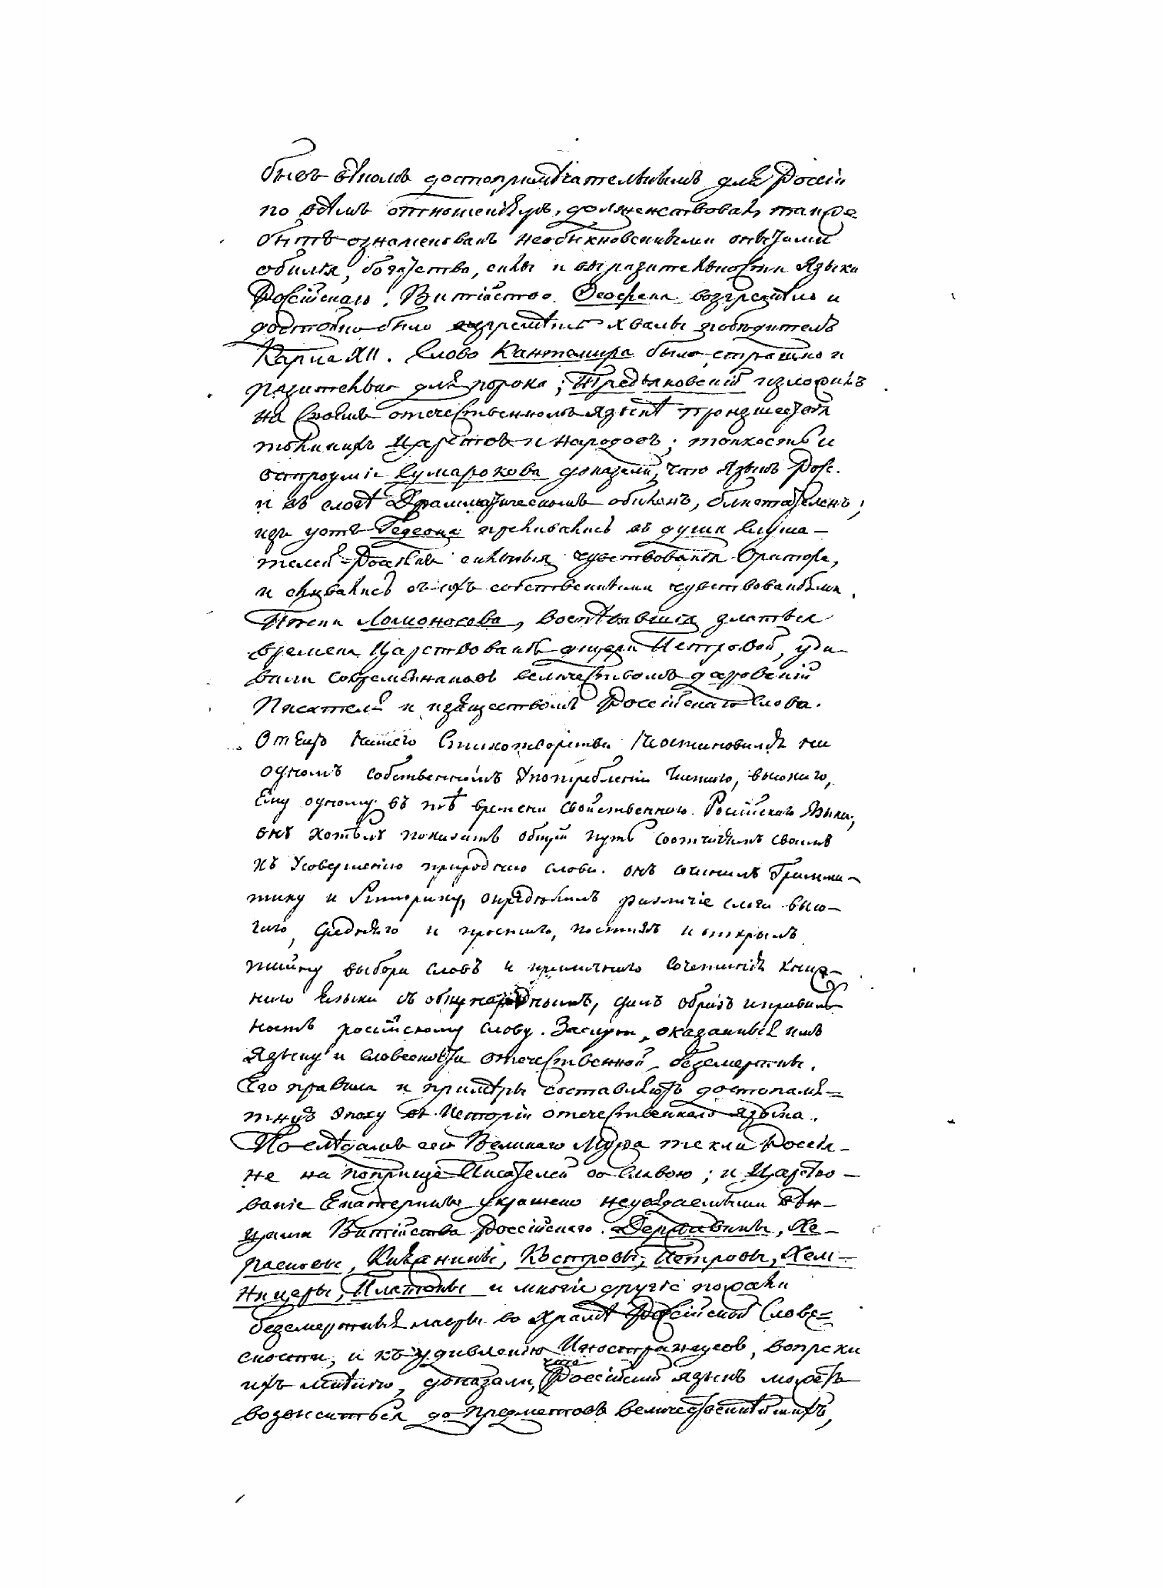 бывъ вѣкомъ достопримѣчательнымъ для Россіи
по всѣмъ отношеніямъ, долженствовалъ также
быть ознаменованъ необыкновенными опытами
обилія, богатства, силы и выразительности Языка
Россійскаго. Витійство Феофана возгремѣло и
достойно было возгремѣть хвалы побѣдителю
Карла XII. Слово Кантемира было страшно и
разительно для порока; Тредьяковскій изложилъ
на своемъ отечественномъ языкѣ произшествія
толикихъ Царствъ и народовъ; тонкость и
остроуміе Сумарокова доказали, что Языкъ Росс.
и въ слогѣ Драмматическомъ обиленъ, блистателенъ;
изъ устъ Гедеона преливались въ души слуша-
телей Россіянъ сильныя чувствованія Оратора,
и сливались съ ихъ собственными чувствованіями.
Пѣсни Ломоносова, воспѣвшія златыя
времена Царствованія дщери Петровой, уди-
вили современниковъ величествомъ дарованій
Писателя и изяществомъ Россійскаго Слова.
Отецъ нашего Стихотворства неостановился на
одномъ собственномъ употребленіи чистаго, высокаго,
Ему одному въ тѣ времена свойственнаго Россійскаго Языка;
онъ хотѣлъ показать общій путь соотчичамъ своимъ
къ Усовершенію природнаго слова. онъ сочинилъ Грамма-
тику и Риторику, опредѣлилъ различіе слога высо-
каго, средняго и простаго, постигъ и открылъ
тайну выбора словъ и приличнаго сочетанія книж-
наго Языка съ обще народнымъ, далъ образъ и правиль-
ность россійскому слову. Заслуги, оказанныя имъ
Языку и словесности отечественной безсмертны.
Его правила и примѣры составляютъ достопамя-
тную Эпоху въ Исторіи отечественнаго языка.
По слѣдамъ сего Великаго Мужа текли Россія-
не на поприще Писателей со славою; и Царство-
ваніе Екатерины украшено неувядаемыми вѣн-
цами Витійства Россійскаго. Державины, Хе-
расковы, Княжнины, Костровы, Петровы, Хем-
ницеры, Платоны и многіе другіе
безсмертныя во Храмѣ Россійской Слове-
сности, и къ удивленію Иностранцовъ, вопреки
ихъ мнѣнію, доказали, что Россійскій языкъ можетъ
возвыситься до предметовъ величественнѣйшихъ,